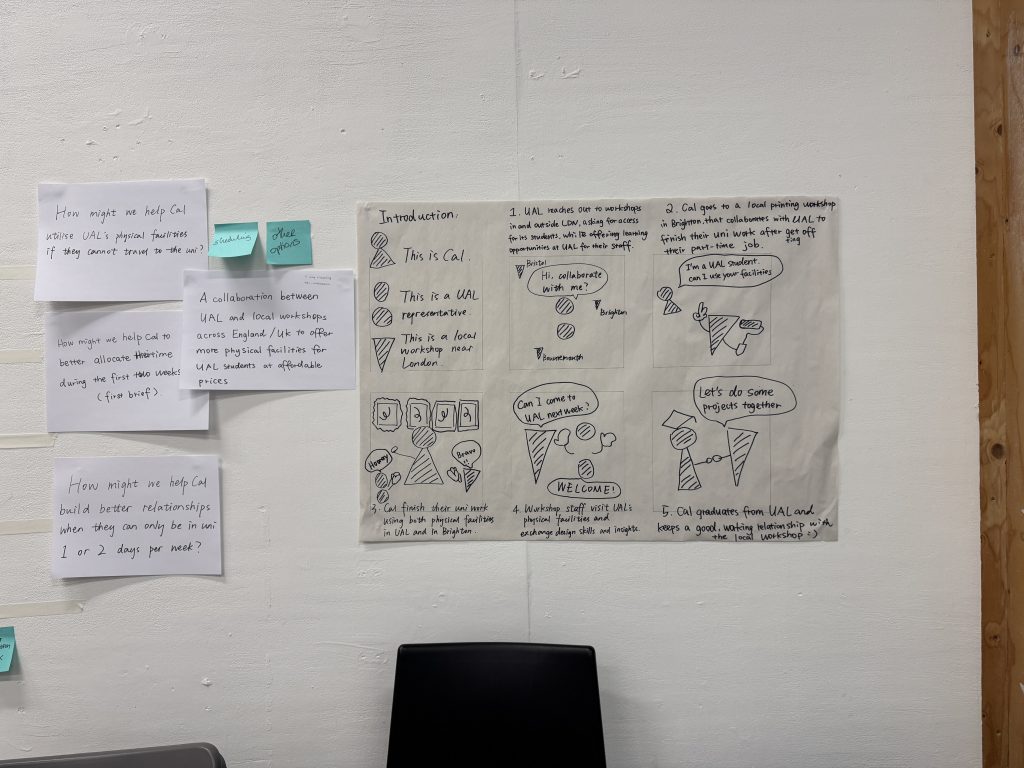 How might we help Cal
utilise UAL's physical facilities
if they cannot travel to the uni?
scheduling
other
options
How might we help Cal to
better allocate their time
during the first two weeks
(first brief).
A collaboration between
UAL and local workshops
across England/UK to offer
more physical facilities for
UAL students at affordable
prices
How might we help Cal
build better relationships
when they can only be in uni
1 or 2 days per week?
Introduction:
This is Cal.
This is a UAL
representative.
This is a local
workshop near
London.
1. UAL reaches out to workshops
in and outside LDN, asking for access
for its students, while offering learning
opportunities at UAL for their staff.
Bristol
Hi, collaborate
with me?
Brighton
Bournemouth
2. Cal goes to a local printing workshop
in Brighton that collaborates with UAL to
finish their uni work after get off
ing
their part-time job.
I'm a UAL student.
can I use your facilities
Hooray
Bravo
3. Cal finish their uni work
using both physical facilities
in UAL and in Brighton.
Can I come to
UAL next week?
WELCOME!
4. Workshop staff visit UAL's
physical facilities and
exchange design skills and insights.
Let's do some
projects together
5. Cal graduates from UAL and
keeps a good, working relationship with
the local workshop :)